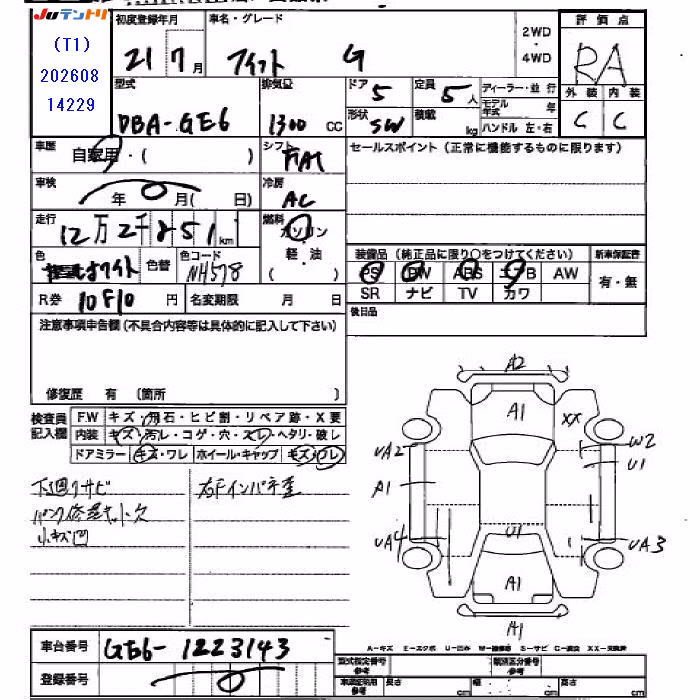 JUテントリ
(T1)
202608
14229
初度登録年月
21年7月
車名・グレード
フィット G
2WD
・
4WD
評価点
RA
外装 内装
C C
型式
DBA-GE6
排気量
1300 CC
ドア 5
形状 SW
定員 5人
積載 kg
ディーラー・並行
モデル年式 年
ハンドル 左・右
車歴
自家用・( )
シフト
FAT
セールスポイント (正常に機能するものに限ります)
車検
年 0 月( 日)
冷房
AC
走行
12万2千851km
燃料
ガソリン
軽・油
( )
色
ホワイト
色替
色コード
NH578
装備品 (純正品に限り○をつけてください)
新車保証書
PS PW ABS エアB AW
有・無
SR ナビ TV カワ
R券 10710 円
名変期限 月 日
後日品
注意事項申告欄 (不具合内容等は具体的に記入して下さい)
修復歴 有 (箇所 )
検査員
記入欄
F.W キズ・飛石・ヒビ割・リペア跡・X要
内装 キズ・汚レ・コゲ・穴・スレ・ヘタリ・破レ
ドアミラー キズ・ワレ ホイール・キャップ キズ・ワレ
下廻りサビ
パンク修理キット欠
小キズ凹
右Fインパネ歪
A2
A1
XX
W2
U1
UA2
A1
UA4
U1
UA3
A1
A1
A-キズ E-エクボ U-凹み W-補修跡 S-サビ C-腐食 XX-交換済
車台番号
GE6-1223143
登録番号
0
型式指定番号
参考
類別区分番号
参考
車庫証明用
参考
長さ cm 幅 cm 高さ cm